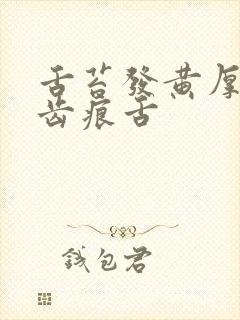 舌苔發黃厚
齿痕舌
钱包君